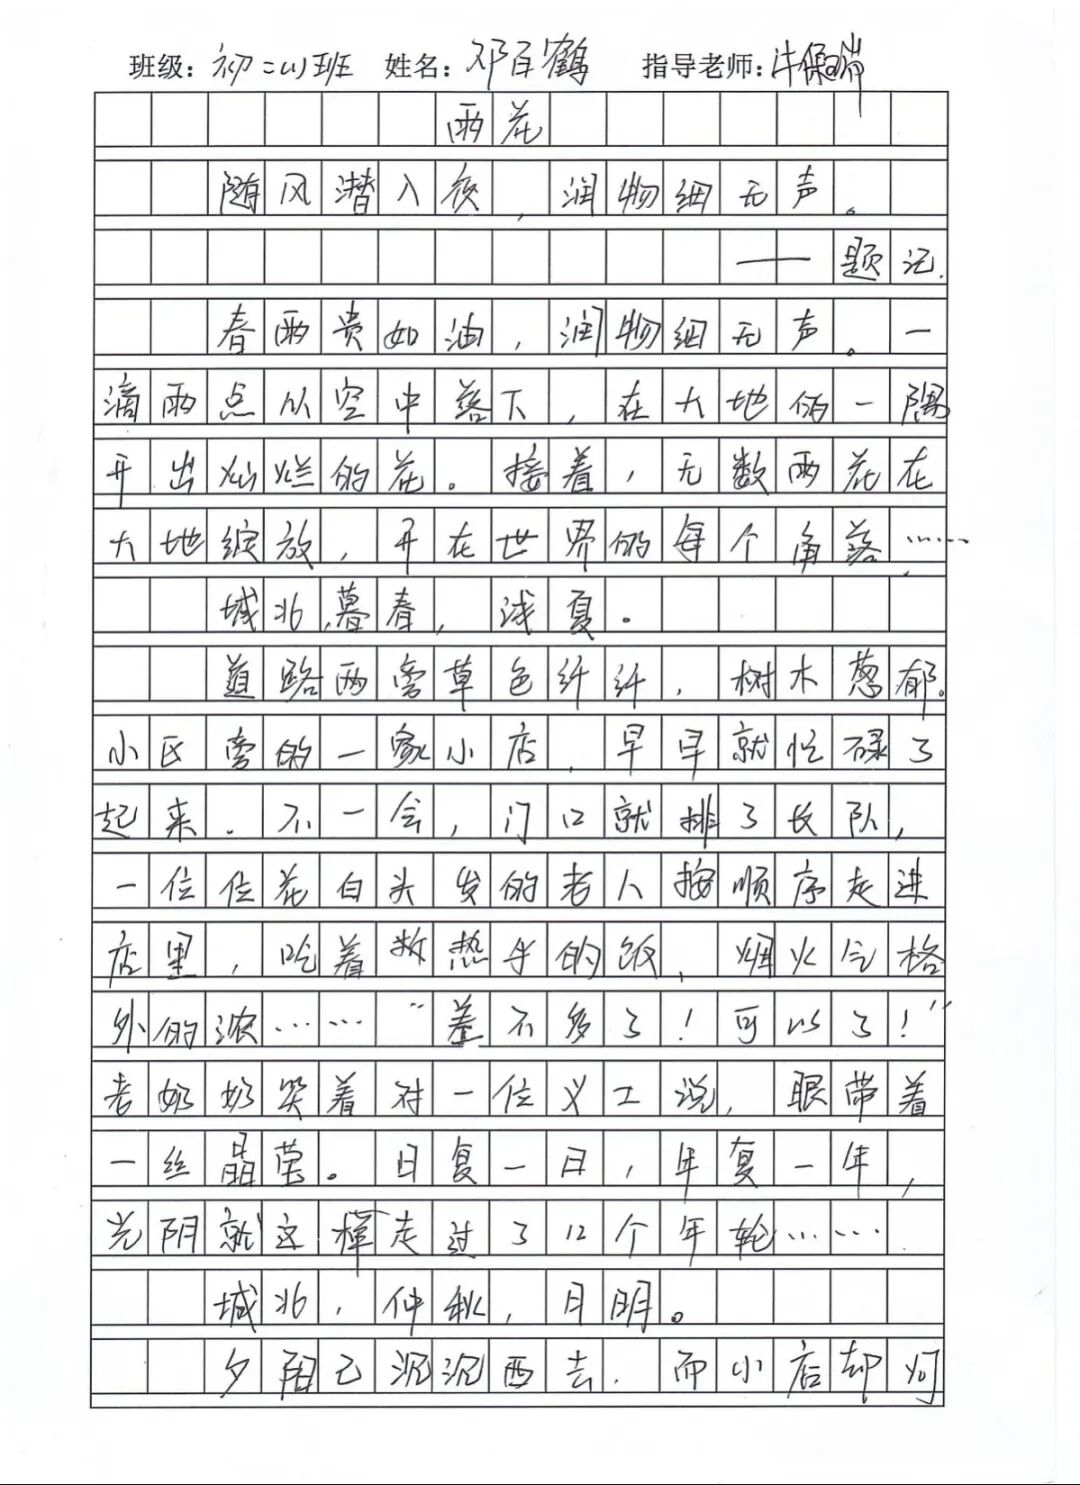 班级：初二(1)班 姓名：邓百鹤 指导老师：牛保
雨花
随风潜入夜，润物细无声。
——题记.
春雨贵如油，润物细无声。一
滴雨点从空中落下，在大地的一隅
开出灿烂的花。接着，无数雨花在
大地绽放，开在世界的每个角落……
城北，暮春，浅夏。
道路两旁草色纤纤，树木葱郁。
小区旁的一家小店，早早就忙碌了
起来．不一会，门口就排了长队，
一位位花白头发的老人按顺序走进
店里，吃着散热乎的饭，烟火气格
外的浓……“差不多了！可以了！”
老奶奶笑着对一位义工说，眼带着
一丝晶莹。日复一日，年复一年，
光阴就这样走过了12个年轮……
城北，仲秋，月明。
夕阳已沉沉西去．而小店却灯